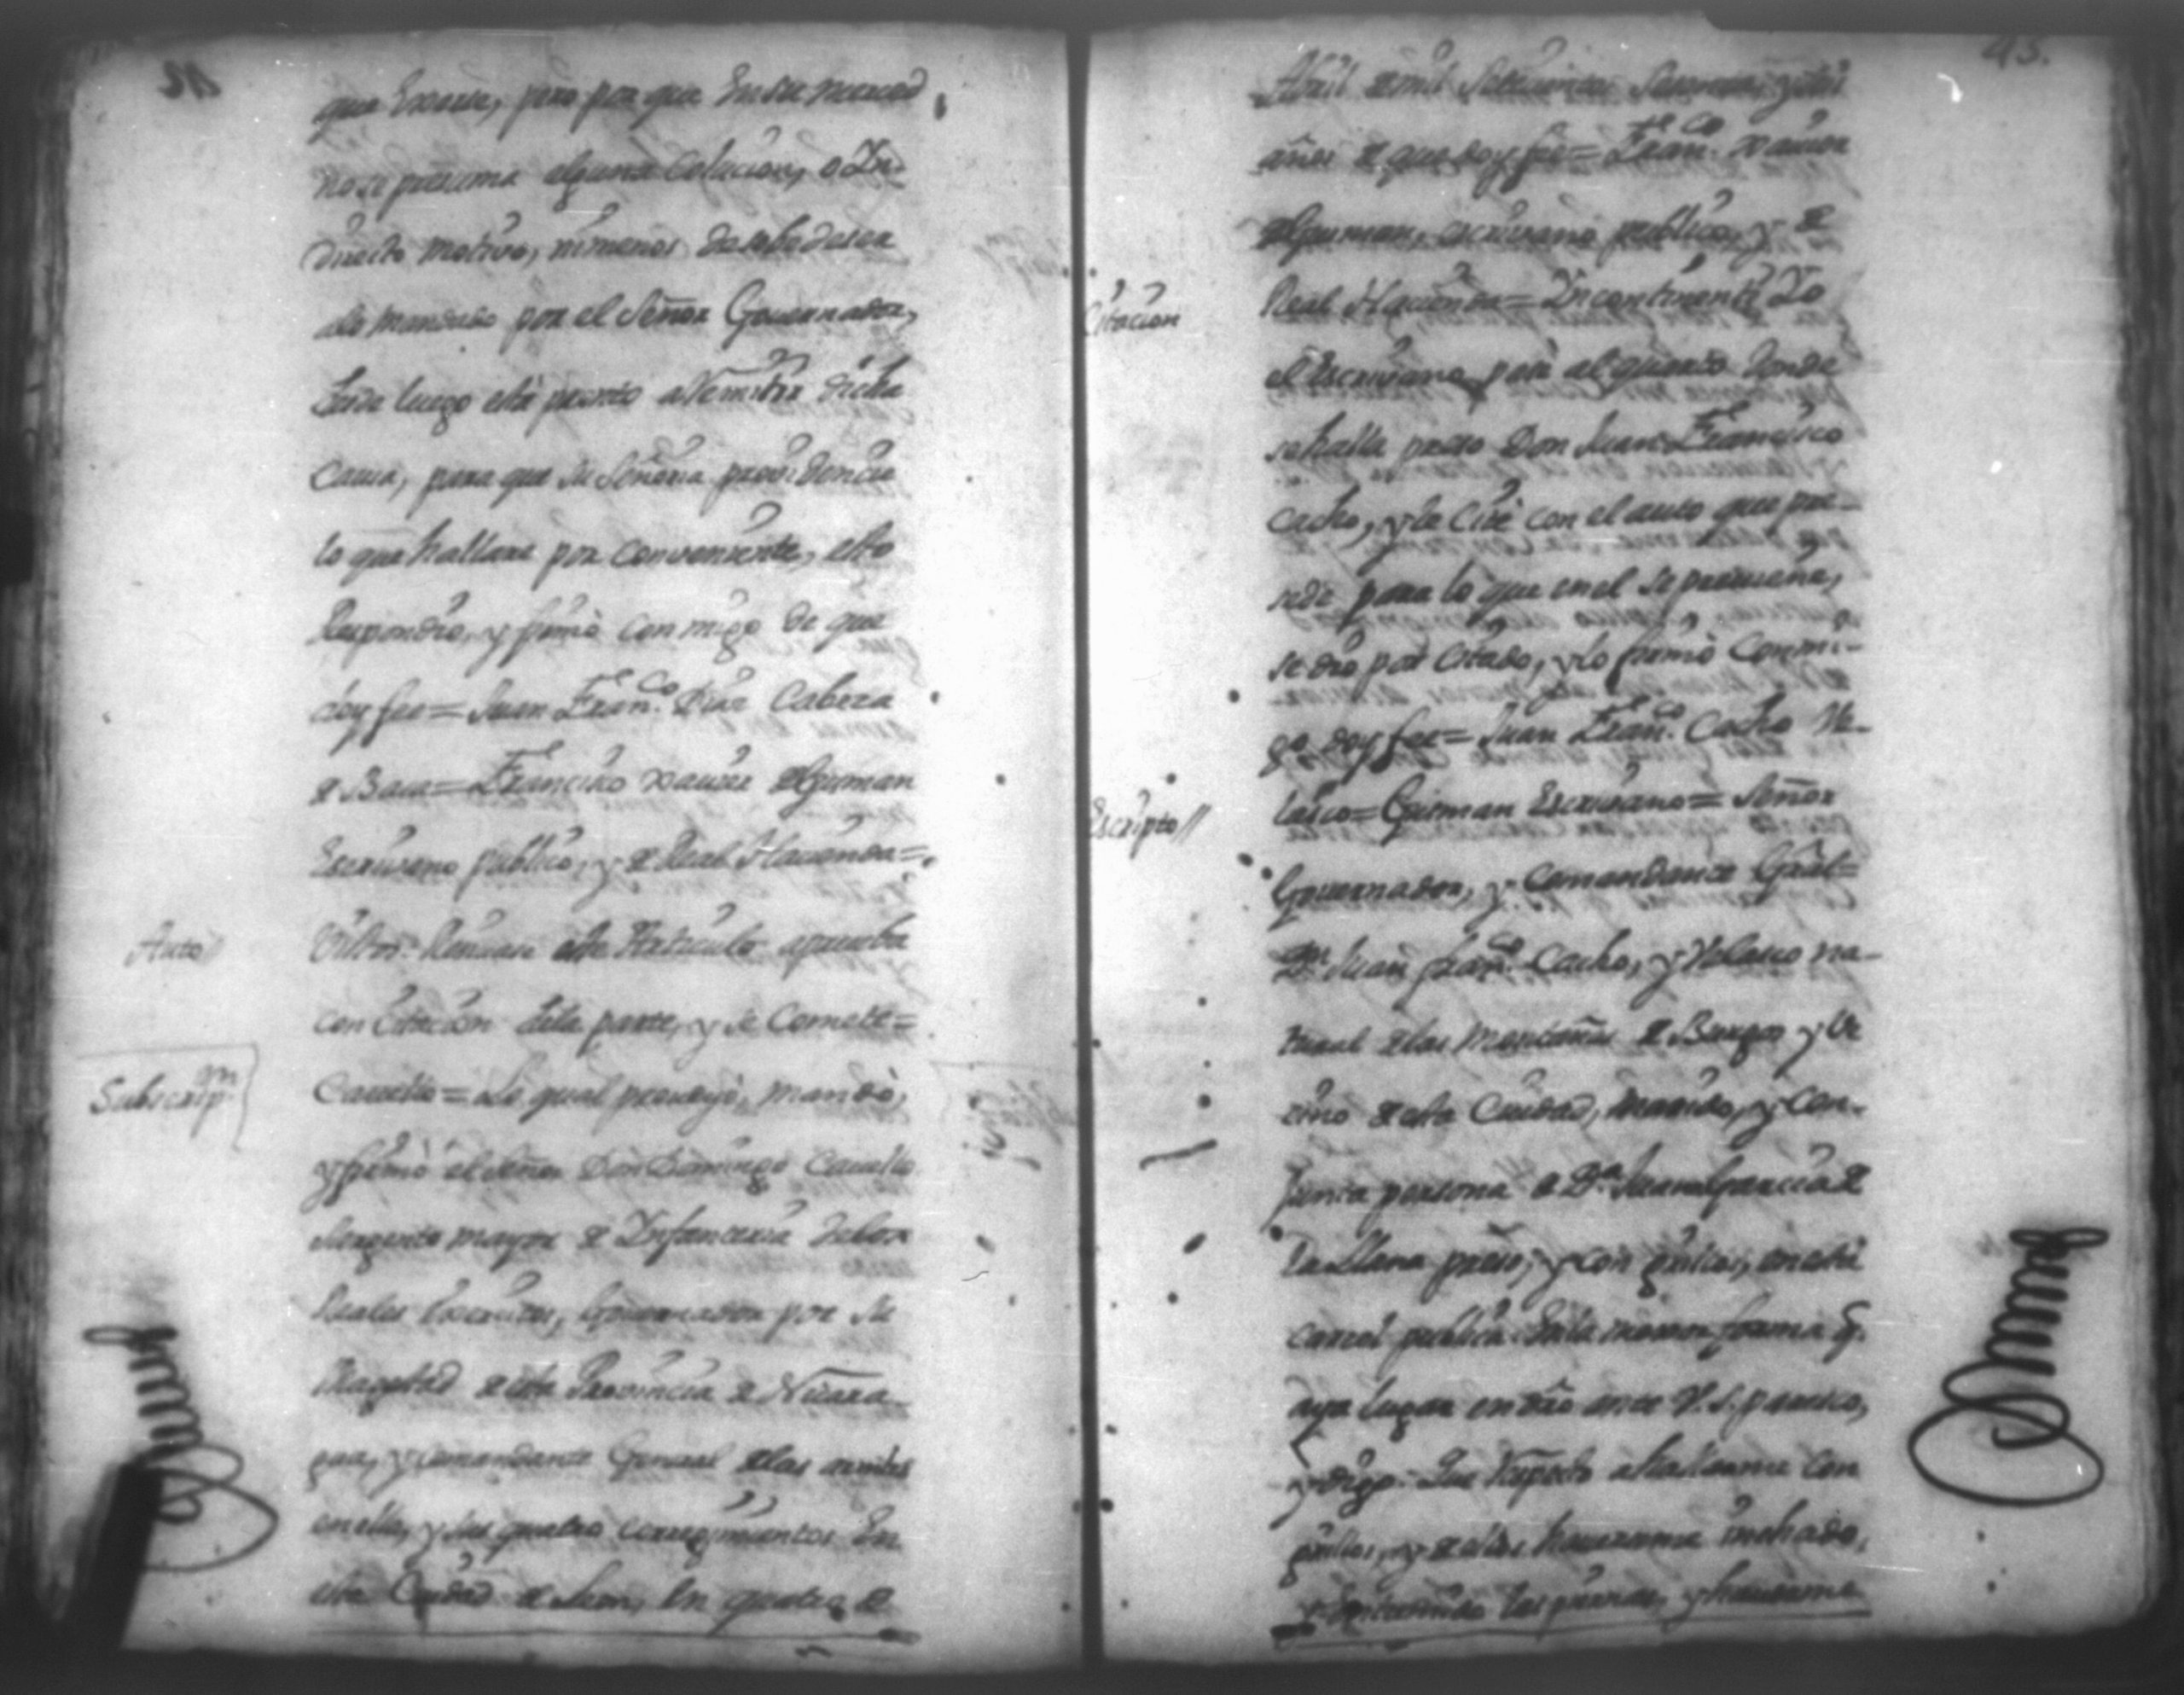 que Execute, pero por que En su merced
no se presuma alguna Colucion, o In-
directo motivo, ni menos desobedeser
alo mandado por el Señor Governador,
desde luego está pronto a Remitir dicha
Causa, para que su Señoria providencie
lo que hallare por Conveniente, esto
Respondio, y firmò con migo de que
doy fee= Juan Fran.co Diaz Cabeza
de Baca= Francisco Xavier de Gusman
Escrivano publico, y de Real Hacienda=
Auto//
Vistos: este Articulo aprueba
con Citacion dela parte, y se Comete=
Subscrip.on
= Lo qual proveyò, mandò,
y firmò el Señor Don Domingo Cavello
Sargento mayor de Infanteria delos
Reales Exercitos, Governador por Su
Magestad de esta Provincia de Nicara-
gua, y Comandante General delas armas
en ella, y sus quatro corregimientos En
esta Ciudad de Leon, En quatro de
43.
Abril de mil Setecientos Sesenta, y
años de que doy fee= Fran.co Xavier
de Gusman, escrivano publico, y de
Real Hacienda= Incontinenti Yo
Citacion
el Escrivano pasè al quarto donde
se halla preso Don Juan Francisco
Cacho, y le Citè con el auto que pre-
sede para lo que en el se previene,
se dio por Citado, y lo firmò Conmi-
go doy fee= Juan Fran.co Cacho Ve-
lasco= Gusman Escrivano= Señor
Escripto//
Governador, y Comandante Gral=
D.n Juan Fran.co Cacho, y Velasco na-
tural delas Montañas de Burgos y Ve
cino de esta Ciudad, marido, y Con-
junta persona de D.a Juana Garcia de
la Llana preso, y con grillos, en esta
carcel publica En la mexor forma q.
aya lugar en dro ante V. S. paresco,
y digo: Que Respecto a hallarme Con
grillos, y de ellos haverseme inchado,
las piernas, y haverseme